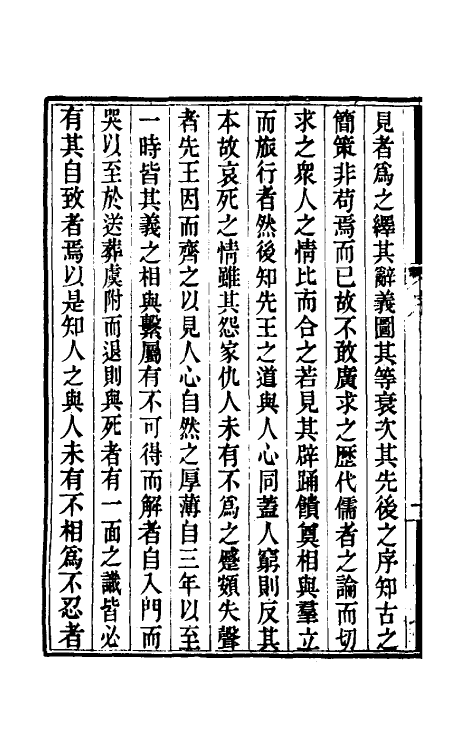 見者爲之繹其辭義圖其等衰次其先後之序知古之
簡策非苟焉而已故不敢廣求之歷代儒者之論而切
求之衆人之情比而合之若見其辟踊饋奠相與羣立
而旅行者然後知先王之道與人心同蓋人窮則反其
本故哀死之情雖其怨家仇人未有不爲之蹙額失聲
者先王因而齊之以見人心自然之厚薄自三年以至
一時皆其義之相與繫屬有不可得而解者自入門而
哭以至於送葬虞附而退則與死者有一面之識皆必
有其自致者焉以是知人之與人未有不相爲不忍者